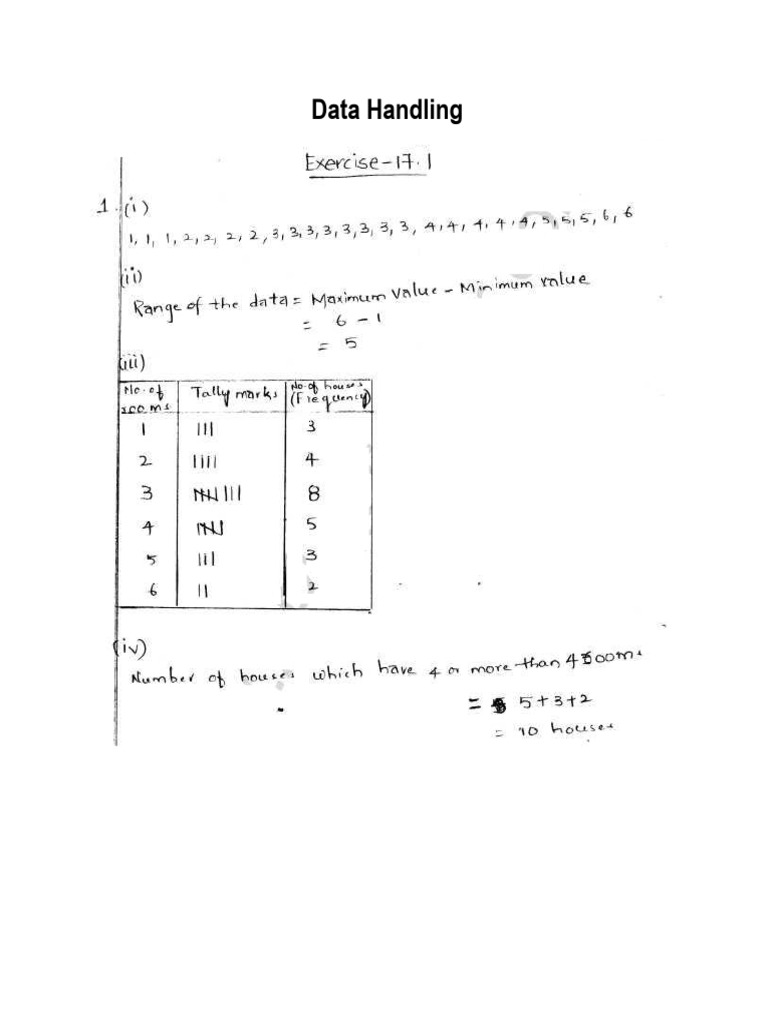 Data Handling
Exercise-17.1
1. (i)
1, 1, 1, 2, 2, 2, 2, 3, 3, 3, 3, 3, 3, 3, 3, 4, 4, 4, 4, 4, 5, 5, 5, 6, 6
(ii)
Range of the data = Maximum value - Minimum value
= 6 - 1
= 5
(iii)
No. of rooms Tally marks No. of houses (Frequency)
1 ||| 3
2 |||| 4
3 ~~||||~~ ||| 8
4 ~~||||~~ 5
5 ||| 3
6 || 2
(iv)
Number of houses which have 4 or more than 4 rooms
= 5+3+2
= 10 houses